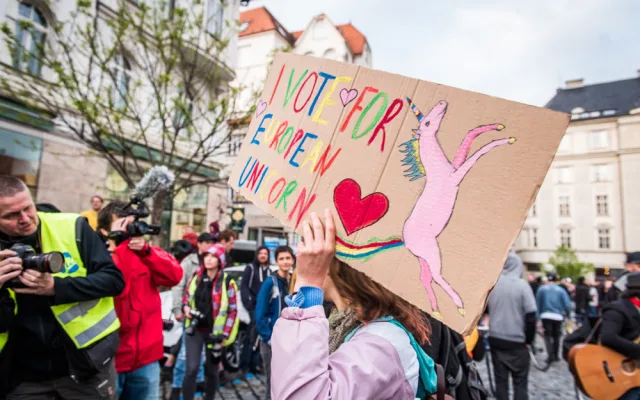 I VOTE FOR
EUROPEAN
UNICORN